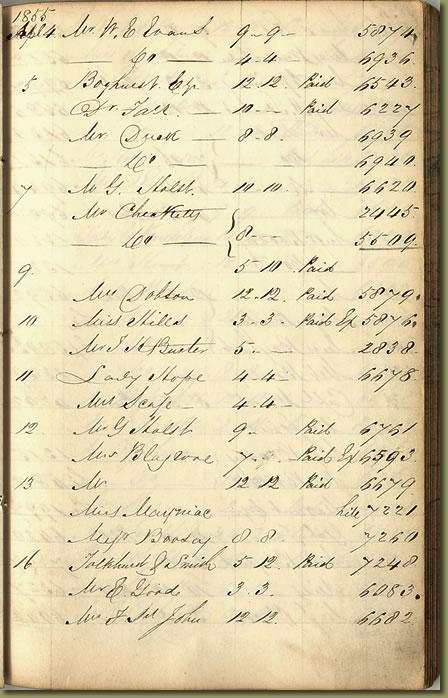 1855
Apl 4 Mr. W. E Evans. 9-9- 5874
— Do — 4-4- 6936
5 Boghurst Esq 12.12. Paid 6543
Dr. Tall — 10-- Paid 6227
Mr — 8-8 6939
— Do — 6940
7 Mr G. Holst 10 10. 6620
Mr 2445
— Do — 8-- 5509
5 10 Paid
9.
Mrs Dobson 12.12. Paid 5879.
10 Miss Hills 3-3- Paid Ex 5876.
Mr 5.-- 2838-
11 Lady Hope 4-4- 6678.
Mrs 4-4-
12 Mr G Holst 9- Paid 6761
Mrs Blagrove 7-- Paid Ex 6593
13 Mr 12 12 Paid 6679
hire 7221
8 8. 7260
16 & Smith 5 12. Paid 7248
Mr E. Goode 3.3. 6083.
Mrs F St John 12 12. 6682